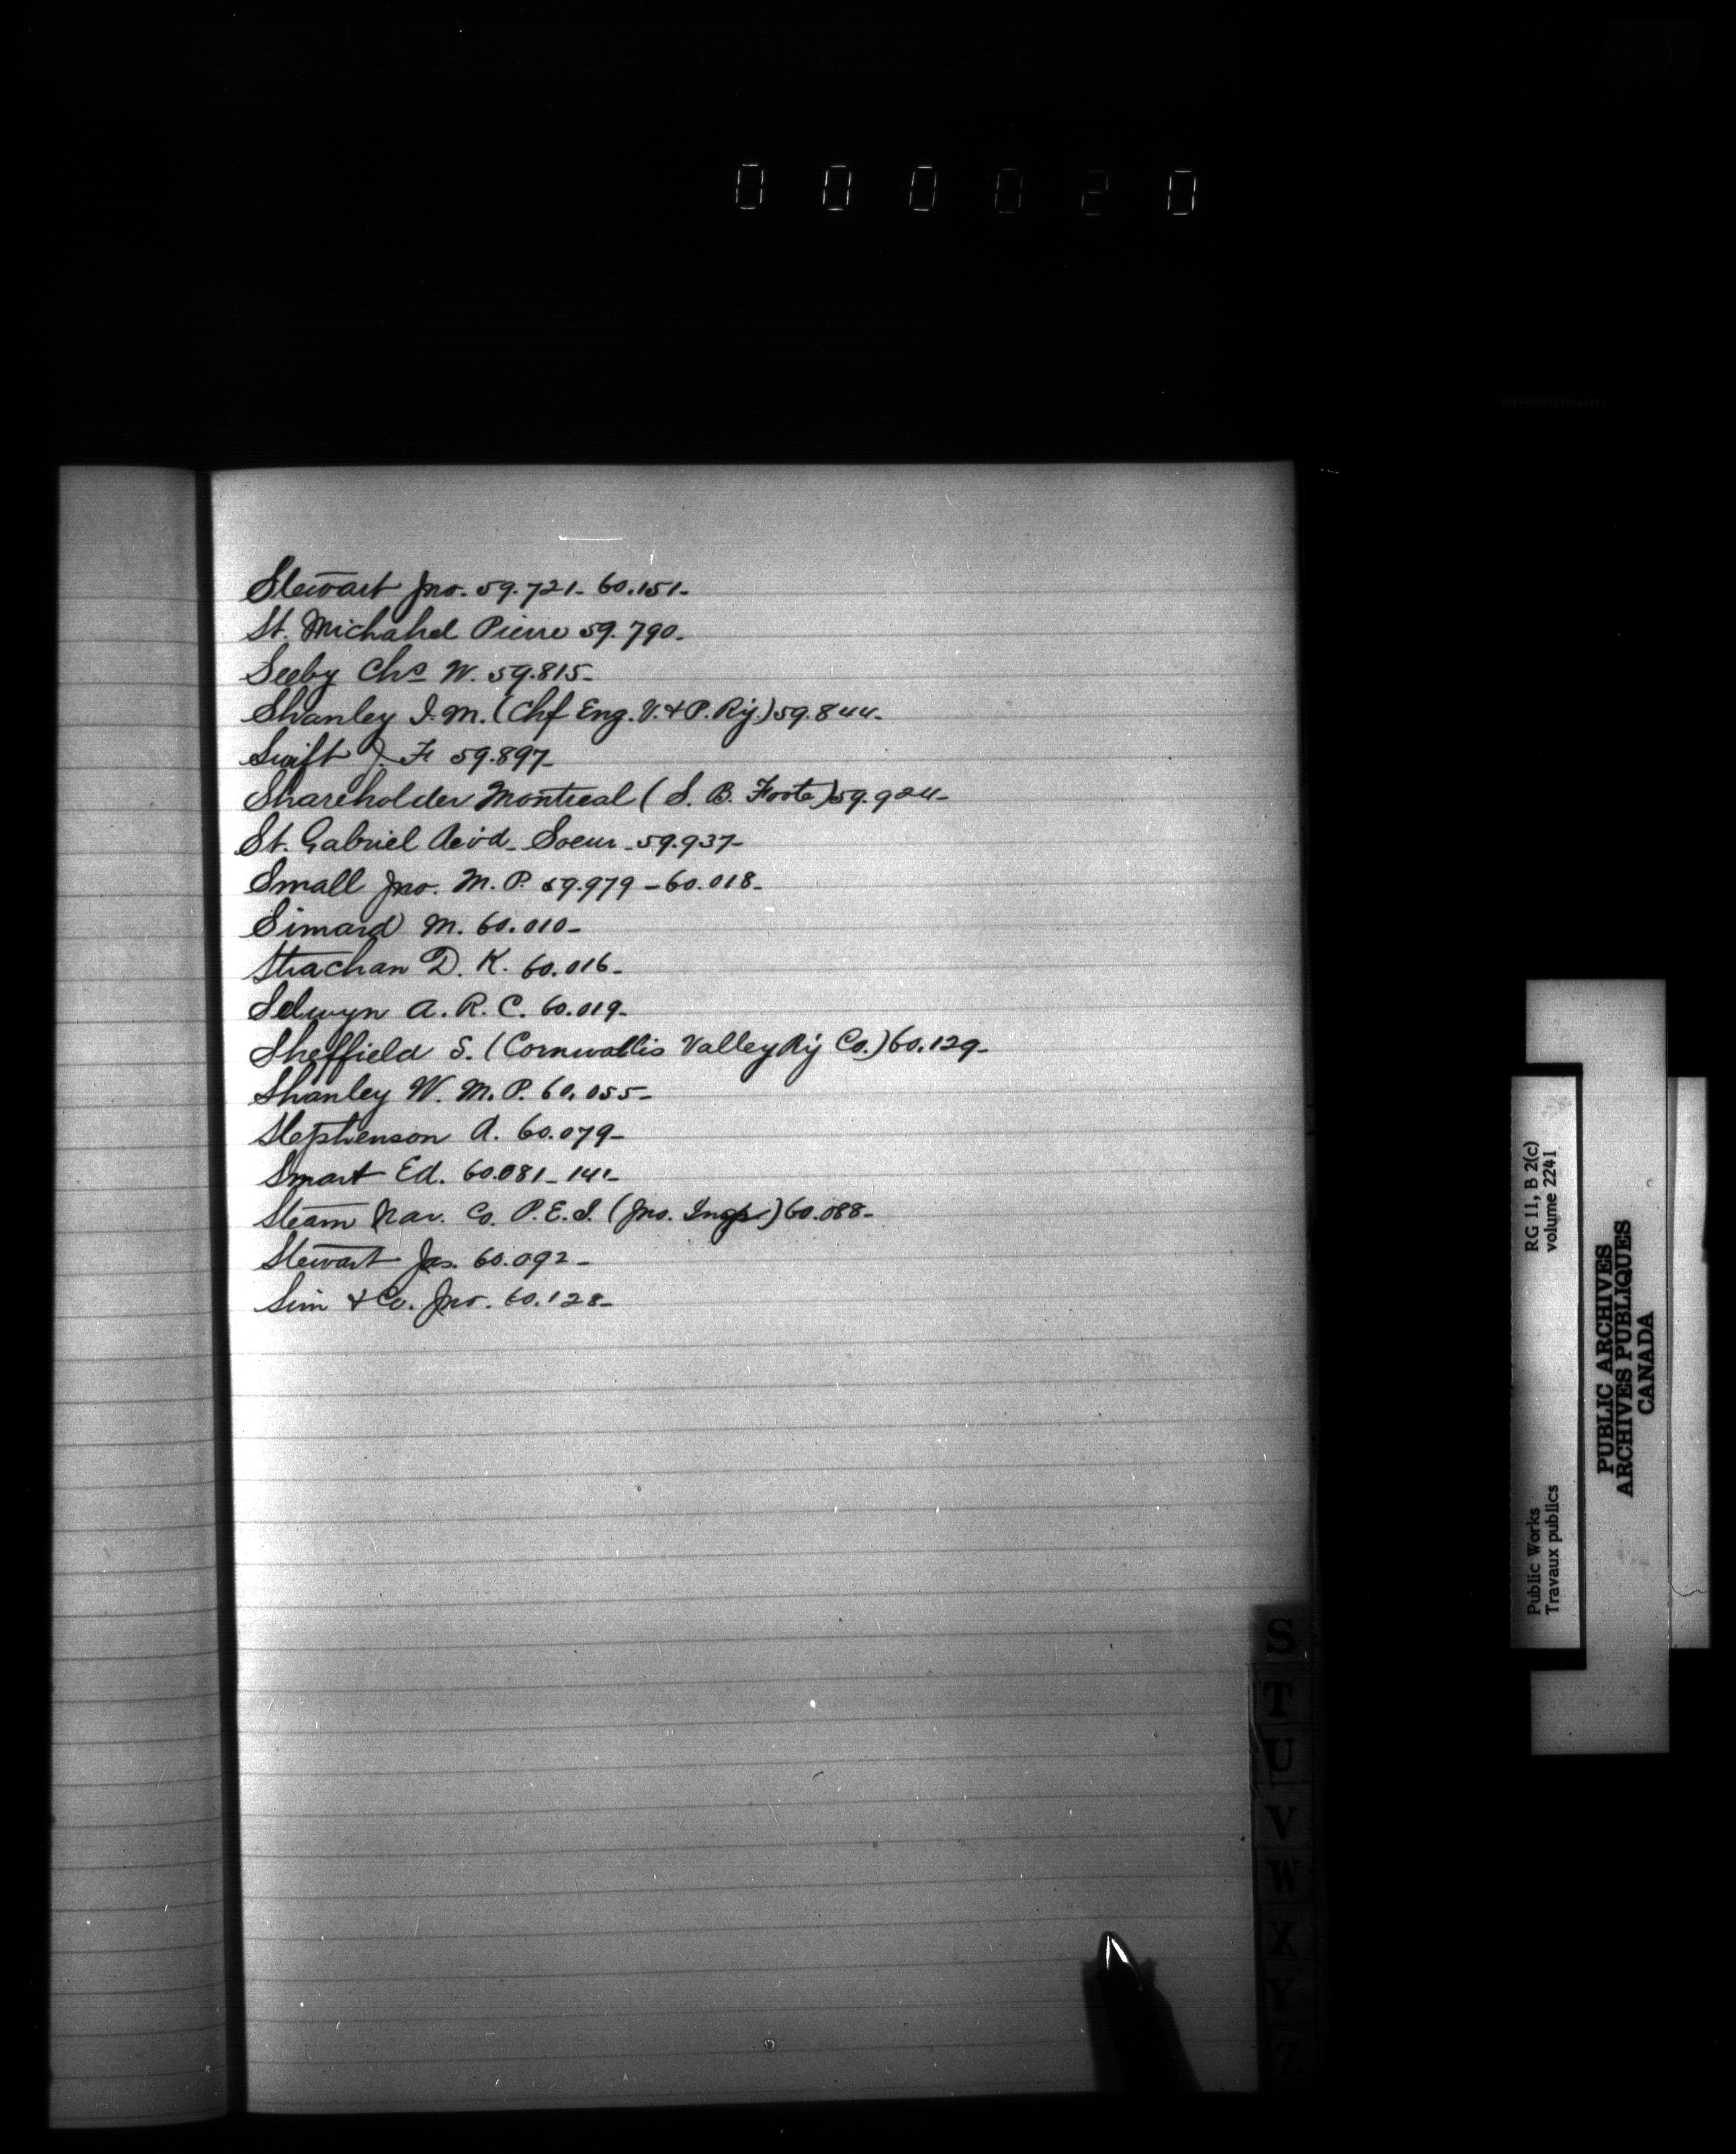 0 0 0 0 2 0
Stewart Jno. 59.721- 60.151-
St. Michahel Pierre 59.790-
Seeby Chs W. 59.815-
Shanley J. M. (Chf Eng. V. & P. Ry.) 59.844-
Swift J. F. 59.897-
Shareholder Montreal (S. B. Foote) 59.924-
St. Gabriel Soeur - 59.937-
Small Jno. M. P. 59.979 - 60.018-
Simard M. 60.010-
Strachan D. K. 60.016-
Selwyn A. R. C. 60.019-
Sheffield S. (Cornwallis Valley Ry Co.) 60.129-
Shanley W. M. P. 60.055-
Stephenson A. 60.079-
Smart Ed. 60.081- 141-
Steam Nav. Co. P. E. I. (Jno. Ings) 60.088-
Stewart Jas. 60.092-
Sim & Co. Jno. 60.128-
S
T
U
V
W
X
Y
Z
RG 11, B 2(c)
volume 2241
Public Works
Travaux publics
PUBLIC ARCHIVES
ARCHIVES PUBLIQUES
CANADA